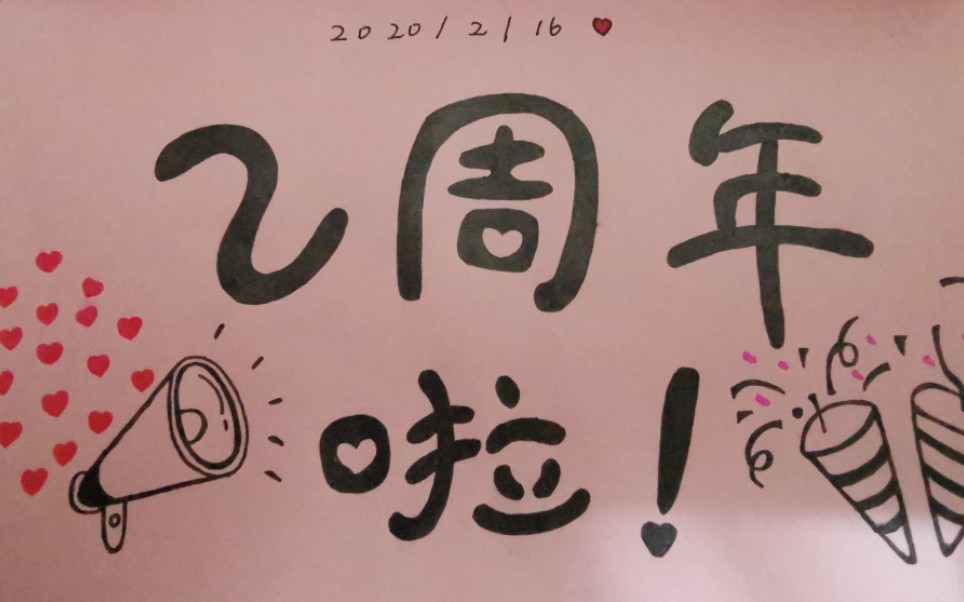 2020/2/16
2周年
啦!